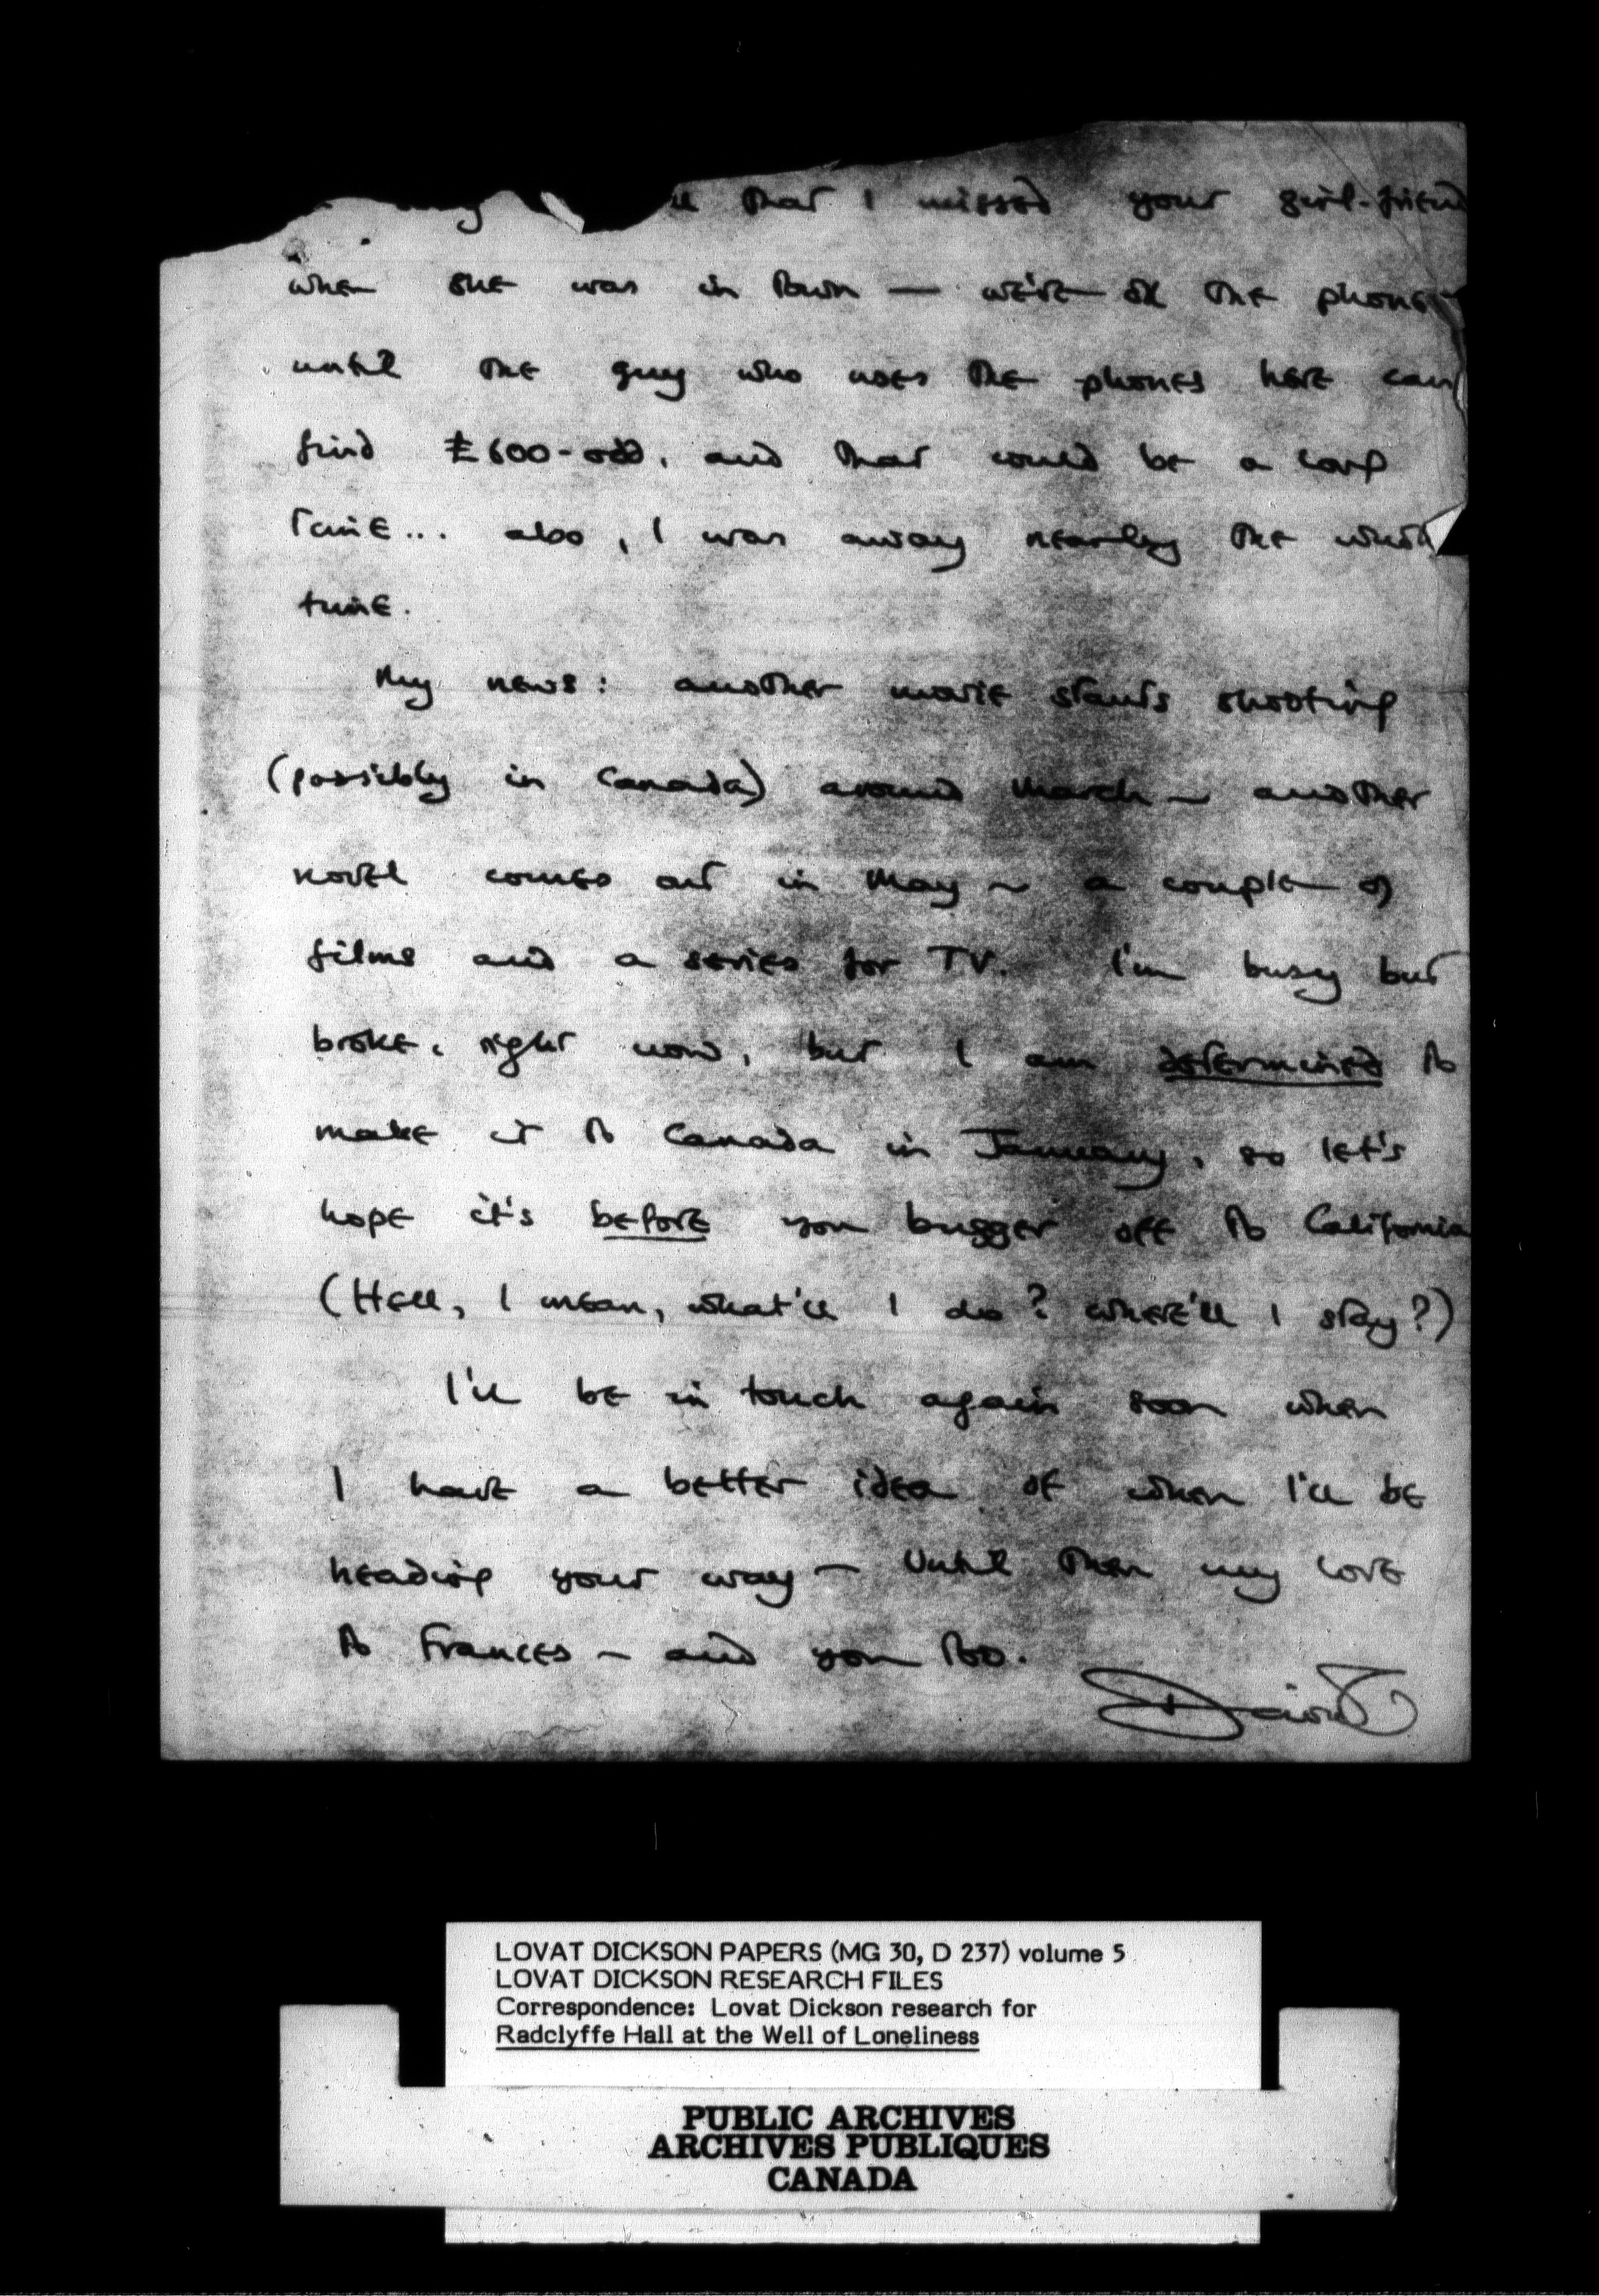 that I missed your girl-friend
when she was in town — we're off the phone
until the guy who uses the phones here can
find £600-odd, and that could be a long
time... also, I was away nearly the whole
time.
My news: another movie starts shooting
(possibly in Canada) around March — another
novel comes out in May — a couple of
films and a series for TV. I'm busy but
broke, right now, but I am determined to
make it to Canada in January, so let's
hope it's before you bugger off to California
(Hell, I mean, what'll I do? where'll I stay?)
I'll be in touch again soon when
I have a better idea of when I'll be
heading your way — Until then my love
to Frances — and you too.
David
LOVAT DICKSON PAPERS (MG 30, D 237) volume 5
LOVAT DICKSON RESEARCH FILES
Correspondence: Lovat Dickson research for
Radclyffe Hall at the Well of Loneliness
PUBLIC ARCHIVES
ARCHIVES PUBLIQUES
CANADA